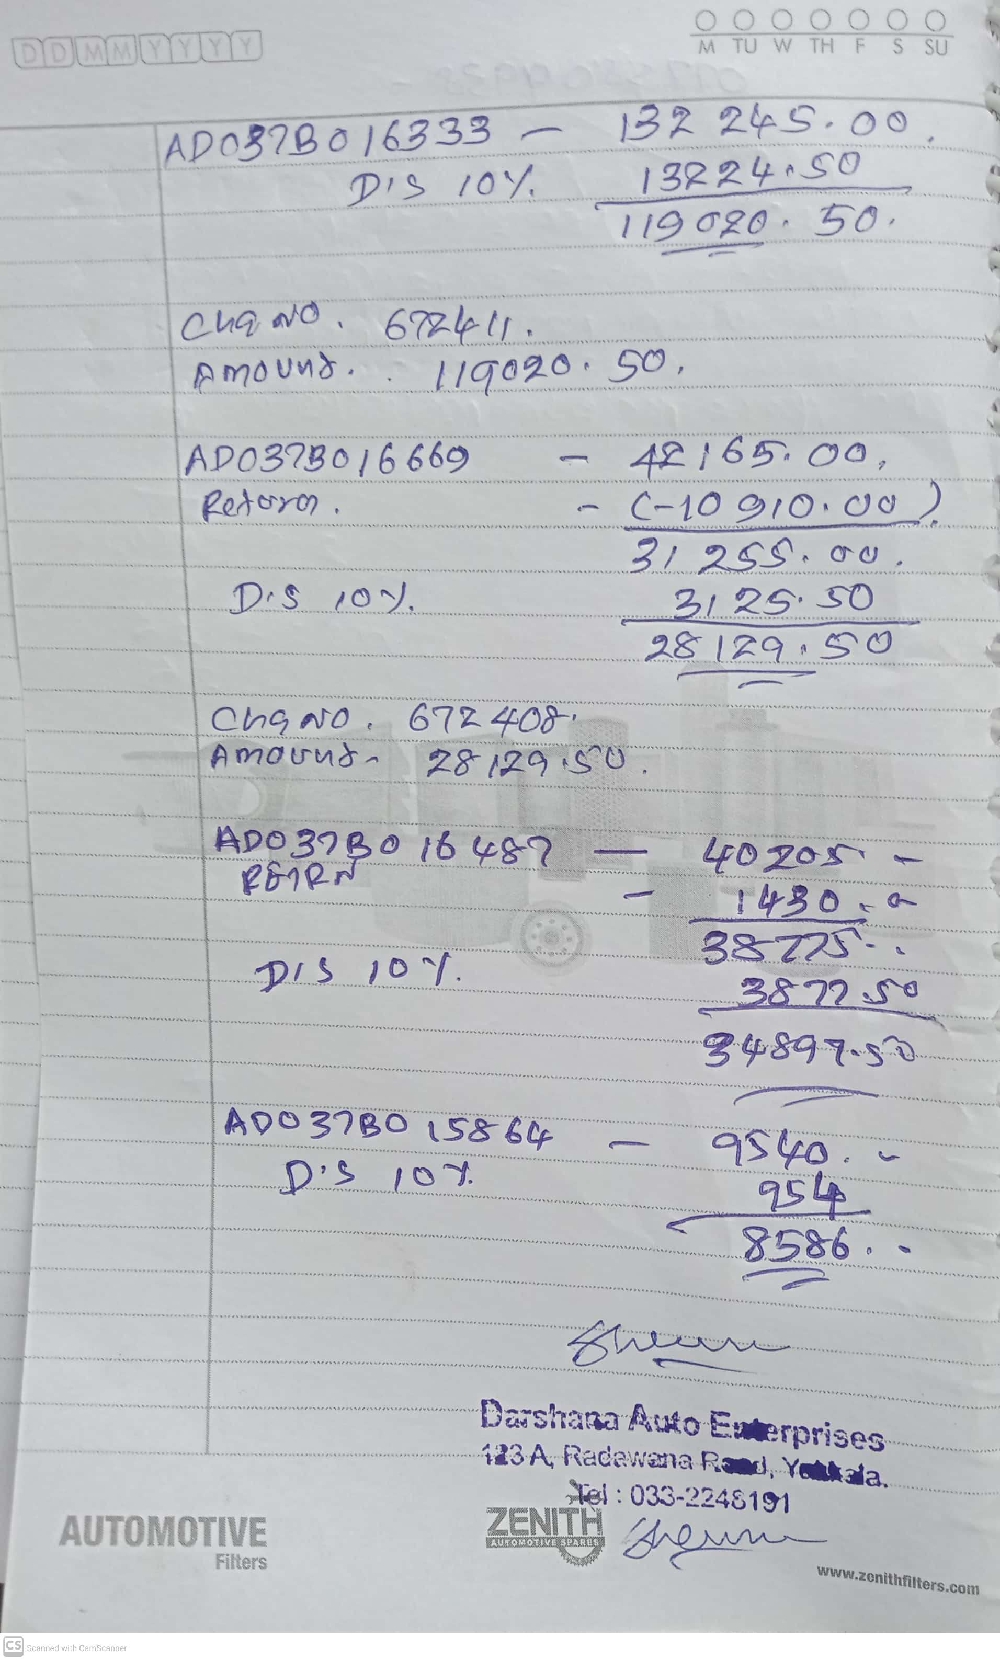 DDMMYYYY
M TU W TH F S SU
AD037B016333 — 132 245.00.
D'S 10%. 13224.50
119020.50.
Chq NO. 672411.
Amount. 119020.50.
AD037B016669 - 42165.00.
Return. - (-10 910.00).
31 255.00.
D.S 10%. 3125.50
28129.50
Chq NO. 672408.
Amount- 28129.50.
AD037B016487 — 40205 -
RETRN - 1430.-
38775-.
DIS 10%. 3877.50
34897.50
AD037B015864 — 9540. -
D'S 10%. 954
8586. -
Darshana Auto Enterprises
123 A, Radawana Road, Yakkala.
Tel : 033-2248191
AUTOMOTIVE
Filters
ZENITH
AUTOMOTIVE SPARES
www.zenithfilters.com
CS Scanned with CamScanner